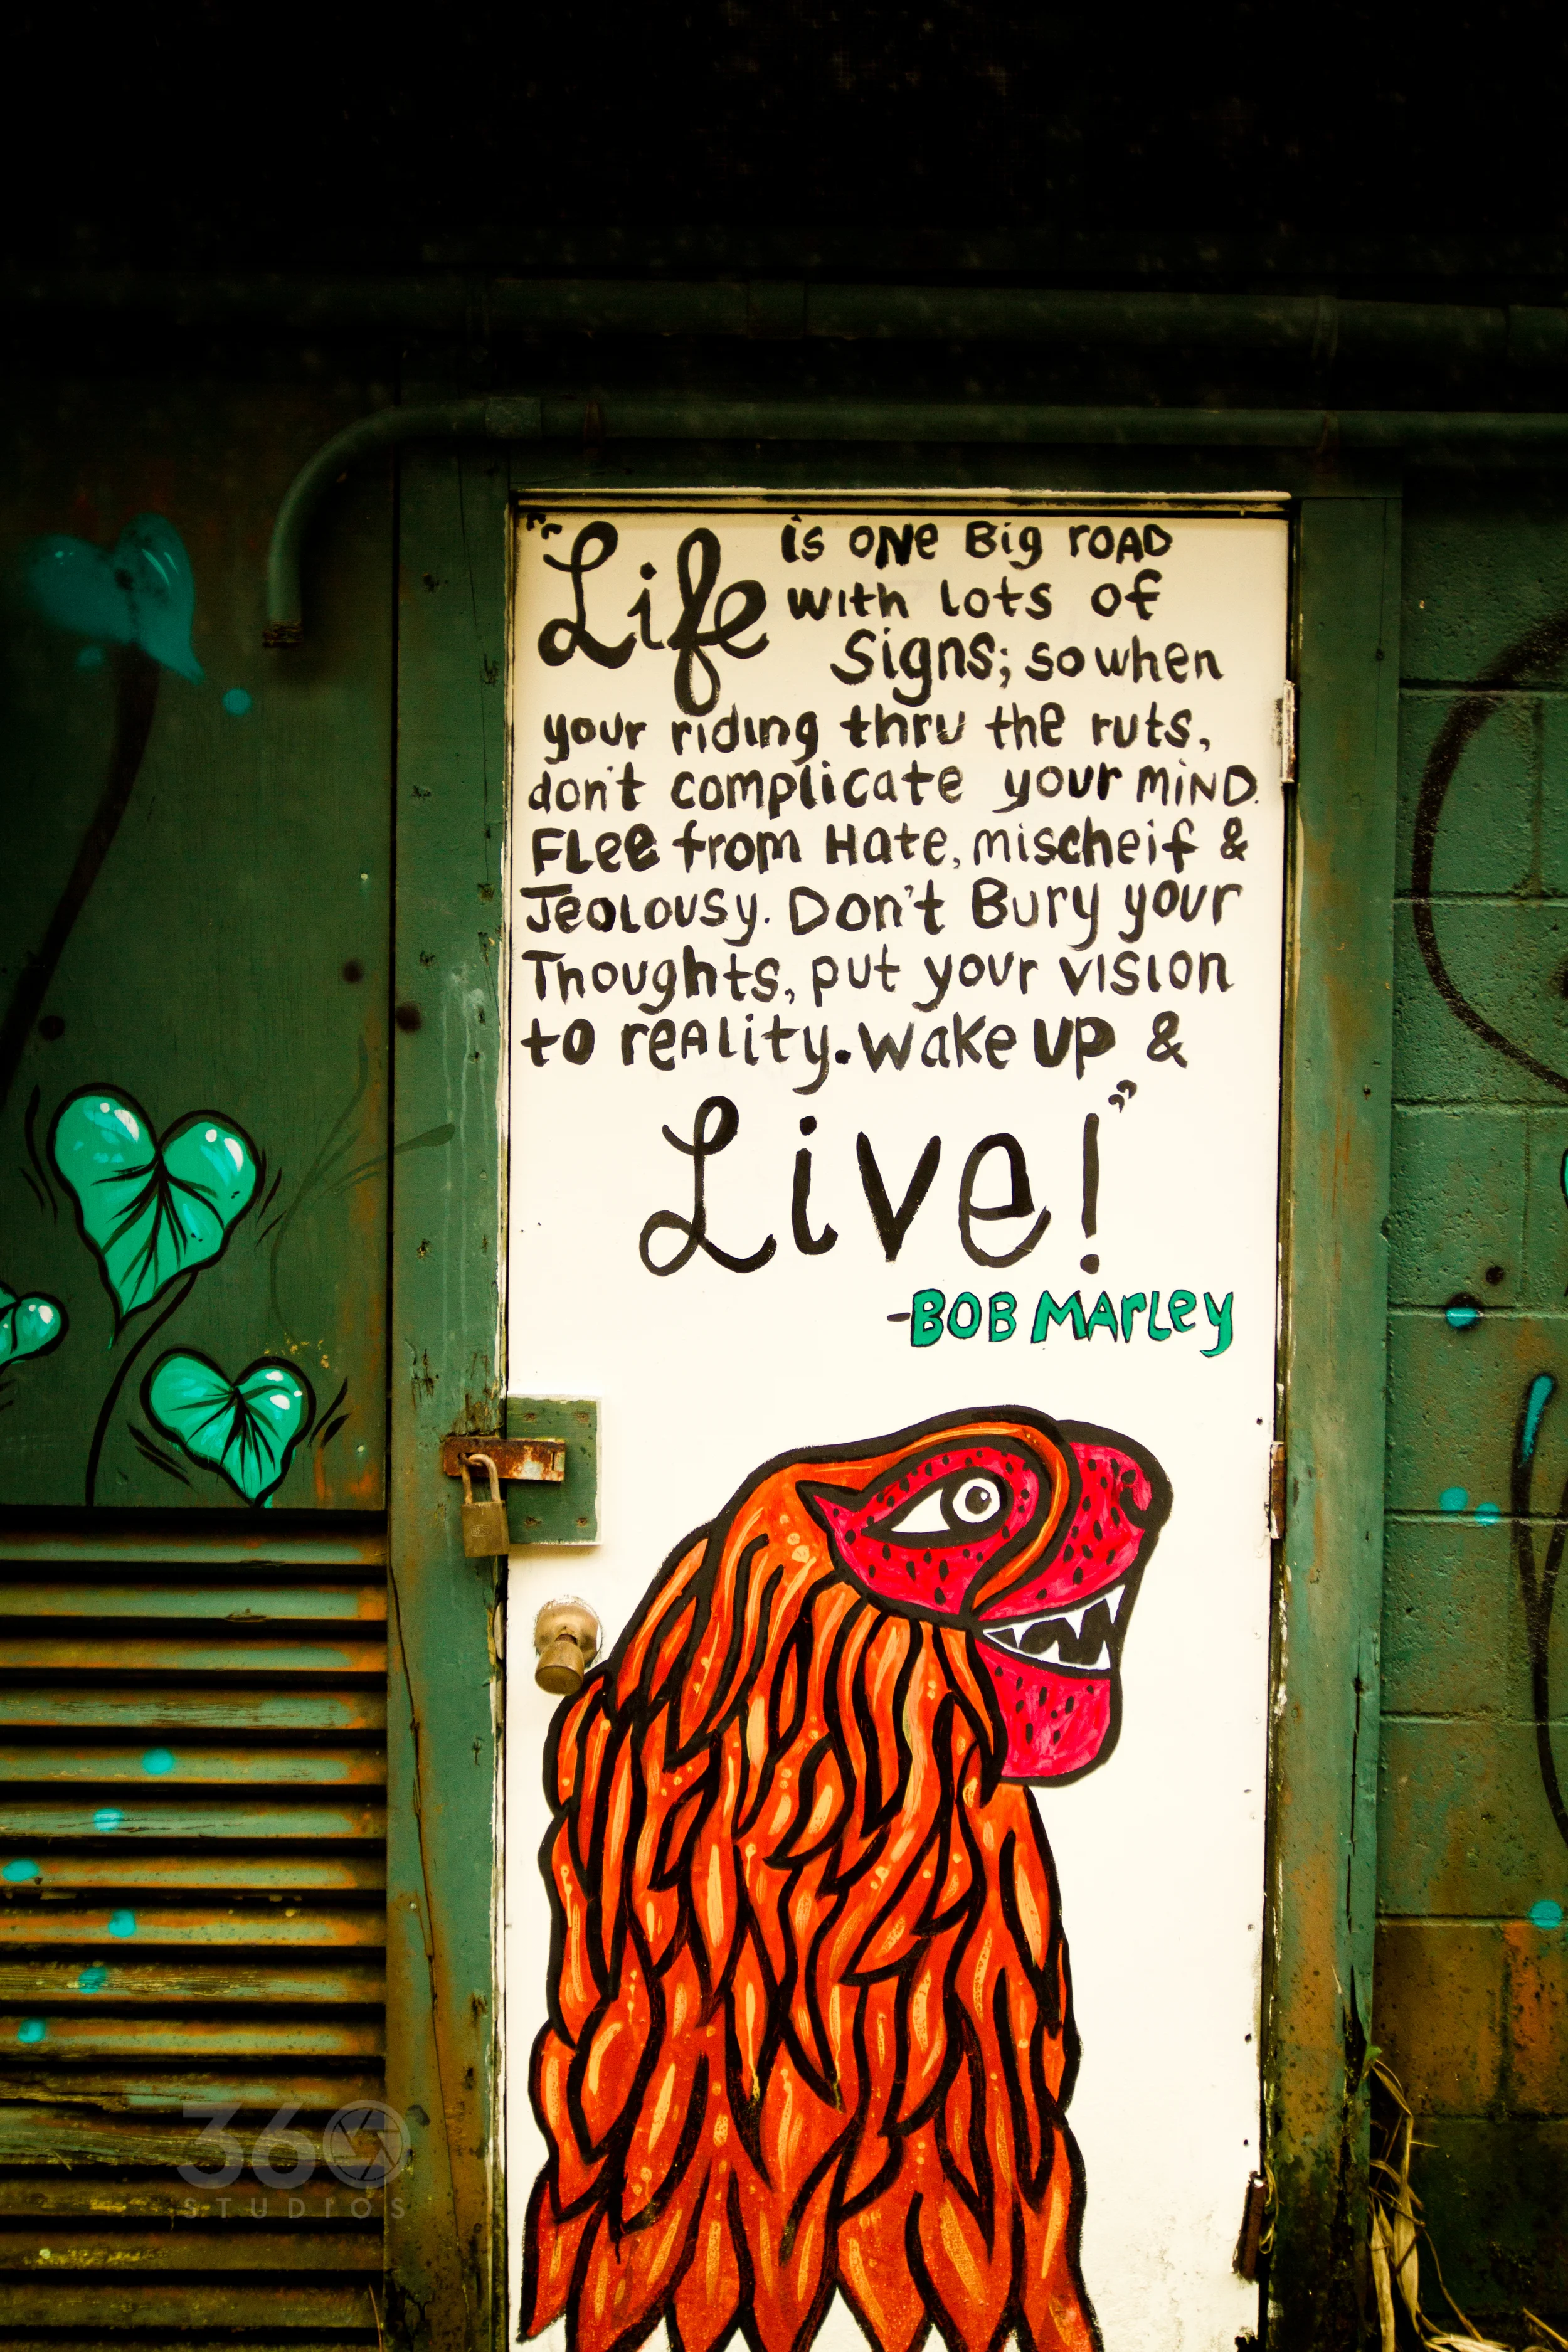 "Life is ONe Big rOAD
with lots of
Signs; so when
your riding thru the ruts,
don't complicate your MiND.
FLee from Hate, mischeif &
Jealousy. Don't Bury your
Thoughts, put your vision
to reALity. Wake UP &
Live!"
-BOB MArLey
360
STUDIOS